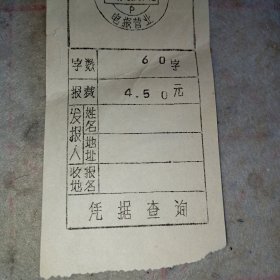 电报营业
字数 60字
报费 4.50元
发报人 姓名
地址
收地 报名
凭据查询